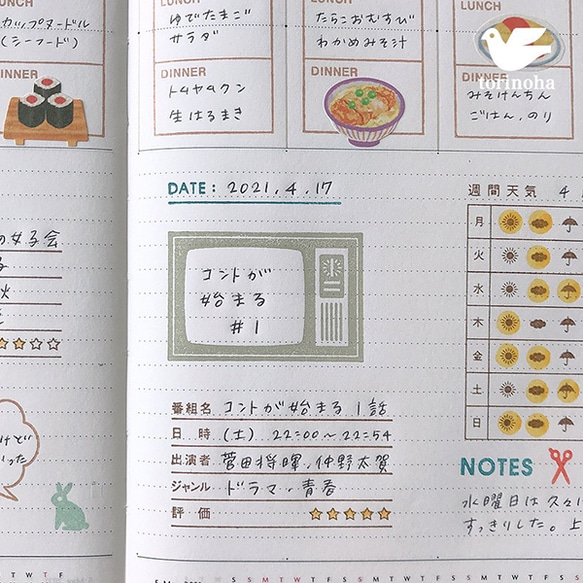 LUNCH
カップヌードル
(シーフード)
LUNCH
ゆでたまご
サラダ
LUNCH
たらこおむすび
わかめみそ汁
torinoha
DINNER
DINNER
トムヤムクン
生はるまき
DINNER
DINNER
みそけんちん
ごはん、のり
DATE: 2021.4.17
の女子会
る
火
コントが
始まる
#1
週間天気 4
月
火
水
木
金
土
日
番組名 コントが始まる 1話
日時 (土) 22:00~22:54
出演者 菅田将暉、仲野太賀
ジャンル ドラマ・青春
評価
けど
った
NOTES
水曜日は久々に
すっきりした。上
M T W T F
S S M T W T F S S M T W T F S S M T W T F S